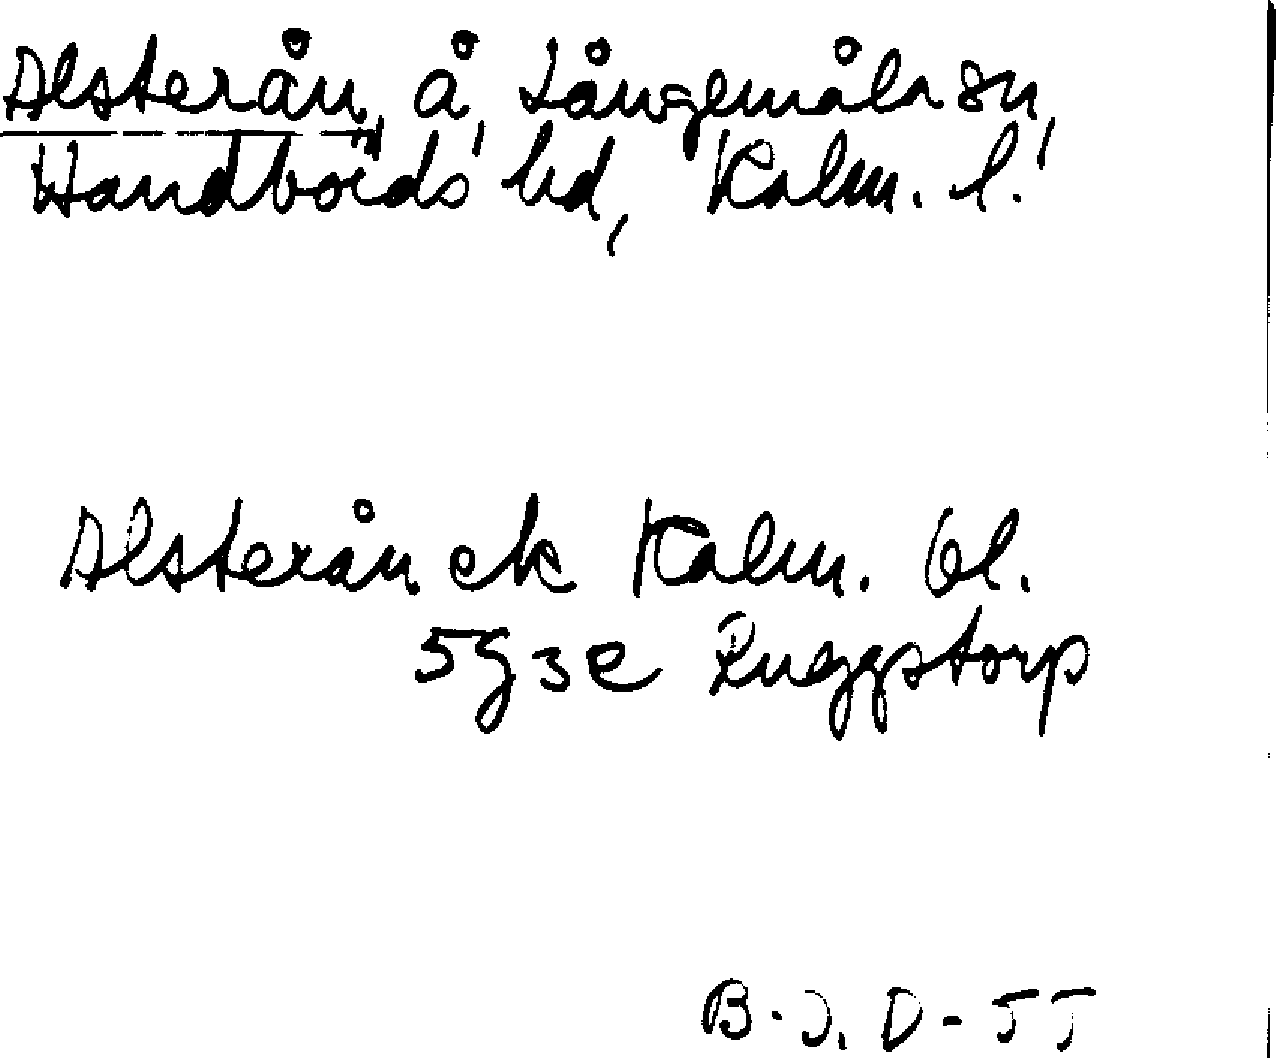 Alsterån, å, Långemåla sn,
Handbörds hd, Kalm. l.
Alsterån ek Kalm. bl.
5g3e Ruggstorp
B.J. D-55